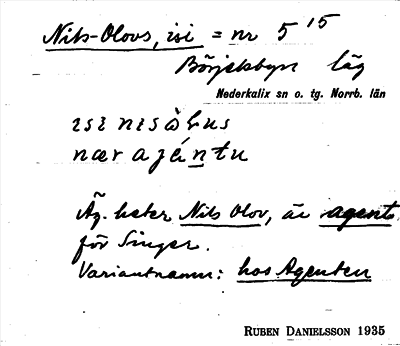 Nils-Olovs, isi = nr 5 15
Börjelsbyn läg
Nederkalix sn o. tg. Norrb. län
isi nisòlus
nær ajǽntu
Äg. heter Nils Olov, är agent
för Singer.
Variantnamn: hos Agenten
RUBEN DANIELSSON 1935